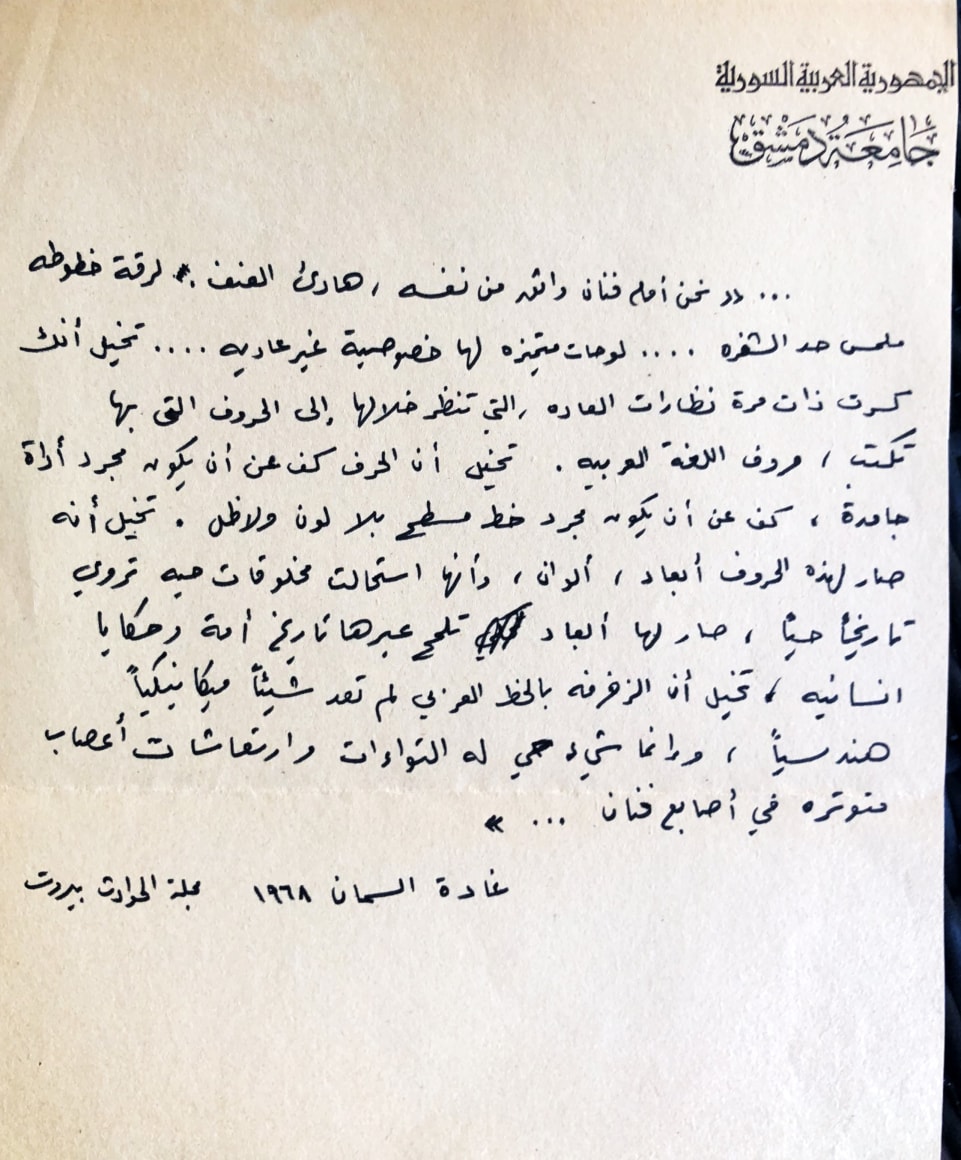 الجمهورية العربية السورية
جَامِعَة دِمَشْق
... « نحن أمام فنان واثق من نفسه ، هادئ العنف . لرقة خطوطه
ملمس حد الشفره .... لوحات متميزه لها خصوصية غير عاديه .... تخيل أنك
كسرت ذات مرة نظارات العاده ، التي تنظر خلالها إلى الحروف التي بها
تكتب ، حروف اللغة العربيه . تخيل أن الحرف كف عن أن يكون مجرد أداة
جامدة ، كف عن أن يكون مجرد خط مسطح بلا لون ولا ظل . تخيل أنه
صار لهذه الحروف أبعاد ، ألوان ، وأنها استحالت مخلوقات حيه تروي
تاريخاً حيّاً ، صار لها أبعاد تلمح عبرها تاريخ أمة وحكايا
انسانيه ، تخيل أن الزخرفه بالخط العربي لم تعد شيئاً ميكانيكياً
هندسياً ، وإنما شيء حي له التواءات وارتعاشات أعصاب
متوتره في أصابع فنان ... »
غادة السمان ١٩٦٨ مجلة الحوادث بيروت